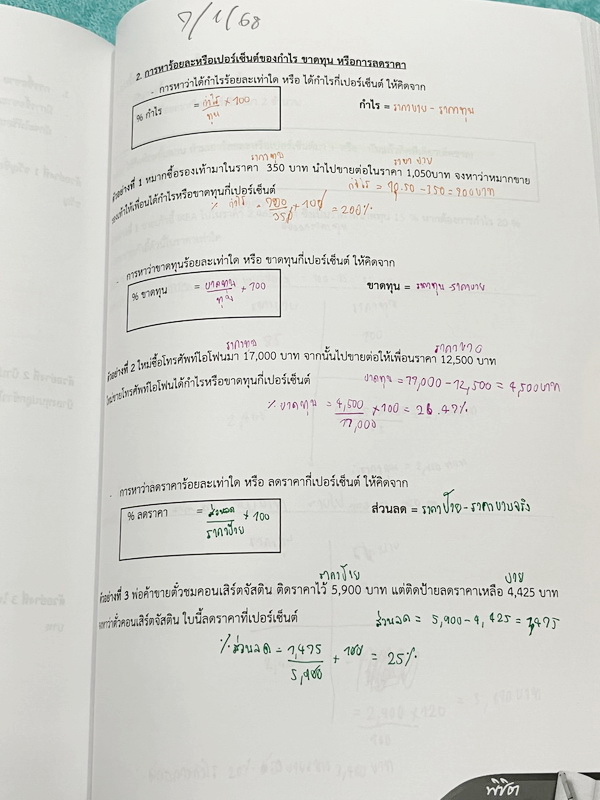 7/1/68
2. การหาร้อยละหรือเปอร์เซ็นต์ของกำไร ขาดทุน หรือการลดราคา
การหาว่าได้กำไรร้อยละเท่าใด หรือ ได้กำไรกี่เปอร์เซ็นต์ ให้คิดจาก
% กำไร = กำไร/ทุน × 100
กำไร = ราคาขาย - ราคาทุน
ราคาทุน ราคาขาย
ตัวอย่างที่ 1 หมากซื้อรองเท้ามาในราคา 350 บาท นำไปขายต่อในราคา 1,050บาท จงหาว่าหมากขาย
รองเท้าให้เพื่อนได้กำไรหรือขาดทุนกี่เปอร์เซ็นต์
กำไร = 1050 - 350 = 700 บาท
% กำไร = 700/350 × 100 = 200%
การหาว่าขาดทุนร้อยละเท่าใด หรือ ขาดทุนกี่เปอร์เซ็นต์ ให้คิดจาก
% ขาดทุน = ขาดทุน/ทุน × 100
ขาดทุน = ราคาทุน - ราคาขาย
ราคาทุน ราคาขาย
ตัวอย่างที่ 2 ใหม่ซื้อโทรศัพท์ไอโฟนมา 17,000 บาท จากนั้นไปขายต่อให้เพื่อนราคา 12,500 บาท
ใหม่ขายโทรศัพท์ไอโฟนได้กำไรหรือขาดทุนกี่เปอร์เซ็นต์
ขาดทุน = 17,000 - 12,500 = 4,500 บาท
% ขาดทุน = 4,500/17,000 × 100 = 26.47%
การหาว่าลดราคาร้อยละเท่าใด หรือ ลดราคากี่เปอร์เซ็นต์ ให้คิดจาก
% ลดราคา = ส่วนลด/ราคาป้าย × 100
ส่วนลด = ราคาป้าย - ราคาขายจริง
ราคาป้าย ขาย
ตัวอย่างที่ 3 พ่อค้าขายตั๋วชมคอนเสิร์ตจัสติน ติดราคาไว้ 5,900 บาท แต่ติดป้ายลดราคาเหลือ 4,425 บาท
จงหาว่าตั๋วคอนเสิร์ตจัสติน ใบนี้ลดราคาที่เปอร์เซ็นต์
ส่วนลด = 5,900 - 4,425 = 1,475
% ส่วนลด = 1,475/5,900 × 100 = 25%
พิชิต